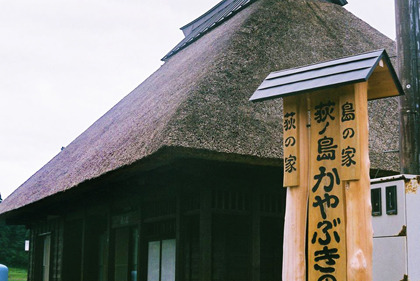 島の家
荻ノ島かやぶきの
荻の家